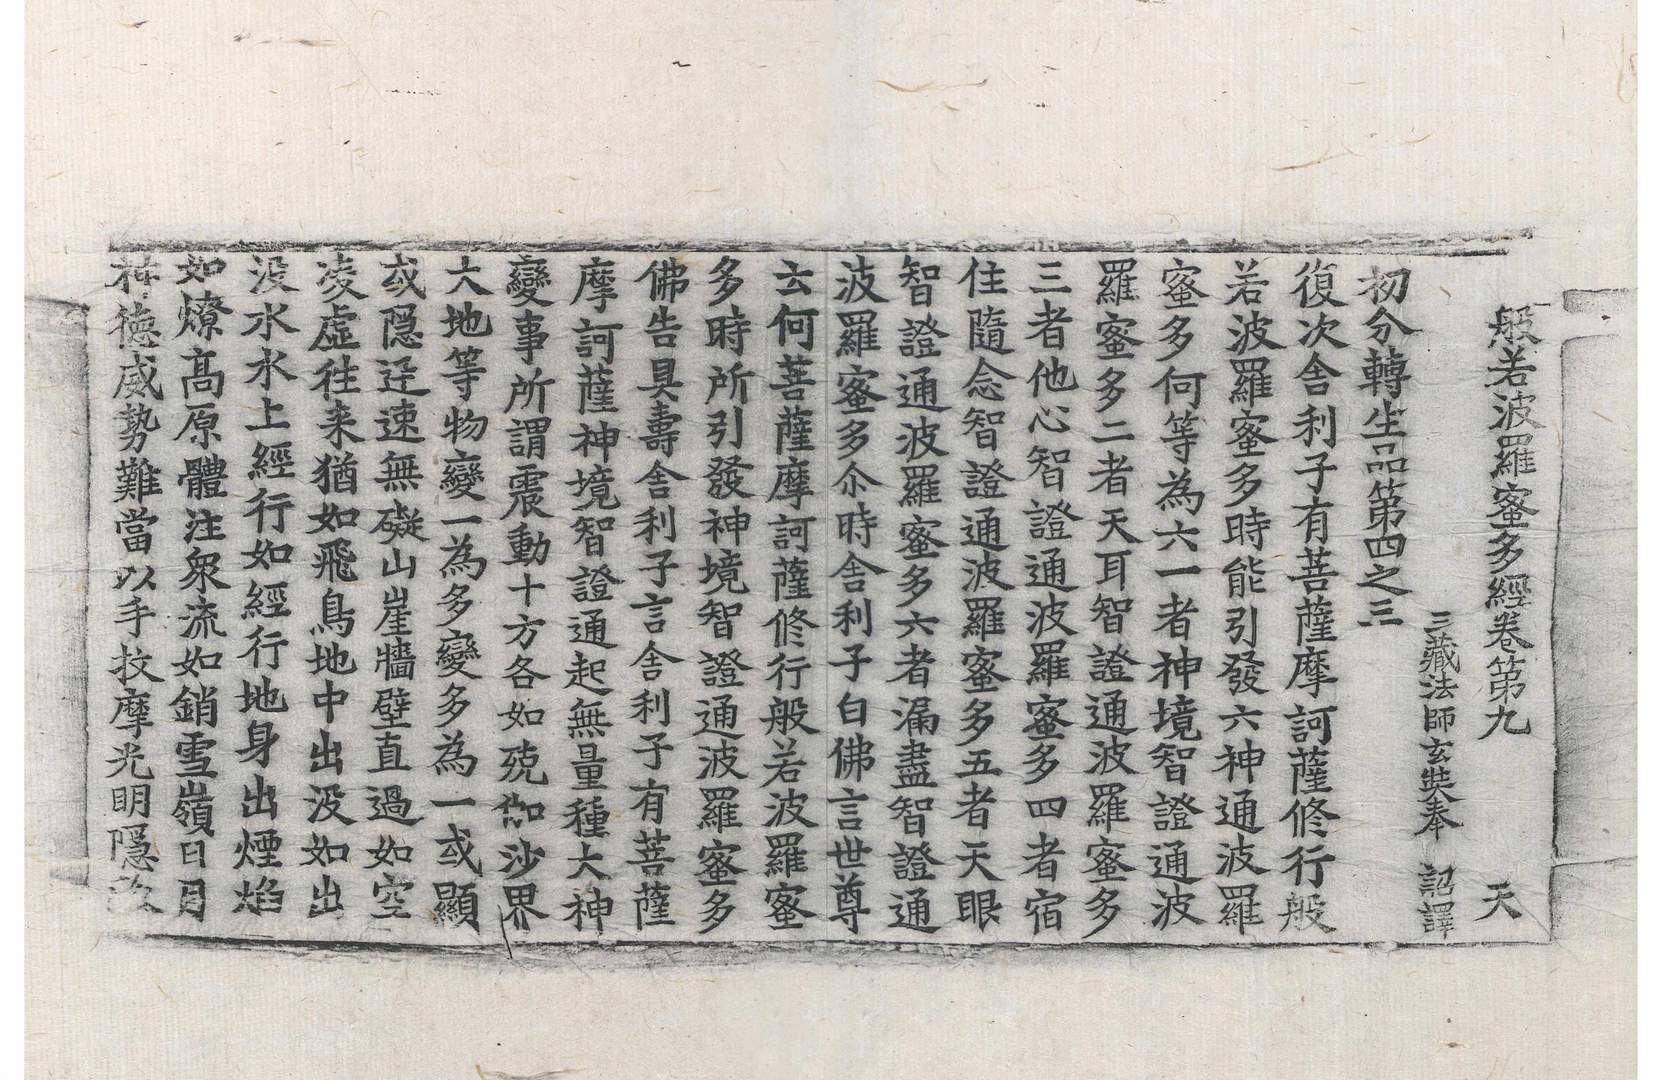 般若波羅蜜多經卷第九 天
三藏法師玄奘奉 詔譯
初分轉生品第四之三
復次舍利子有菩薩摩訶薩修行般
若波羅蜜多時能引發六神通波羅
蜜多何等為六一者神境智證通波
羅蜜多二者天耳智證通波羅蜜多
三者他心智證通波羅蜜多四者宿
住隨念智證通波羅蜜多五者天眼
智證通波羅蜜多六者漏盡智證通
波羅蜜多尒時舍利子白佛言世尊
云何菩薩摩訶薩修行般若波羅蜜
多時所引發神境智證通波羅蜜多
佛告具壽舍利子言舍利子有菩薩
摩訶薩神境智證通起無量種大神
變事所謂震動十方各如殑伽沙界
大地等物變一為多變多為一或顯
或隱迅速無礙山崖牆壁直過如空
凌虛往来猶如飛鳥地中出没如出
没水水上經行如經行地身出煙焰
如燎髙原體注衆流如銷雪嶺日月
神德威勢難當以手抆摩光明隱